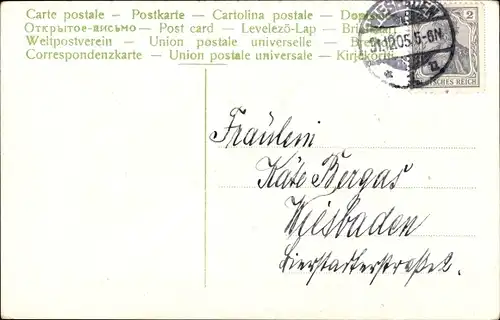 Carte postale – Postkarte – Cartolina postale –
Открытое-письмо – Post card – Levelező-Lap –
Weltpostverein – Union postale universelle –
Correspondenzkarte – Union postale universale – Kirjekortti
WIESBADEN
31.10.05. 5-6N.
2
DEUTSCHES REICH
Fräulein
Käte Bergas
Wiesbaden
Bierstadterstraße